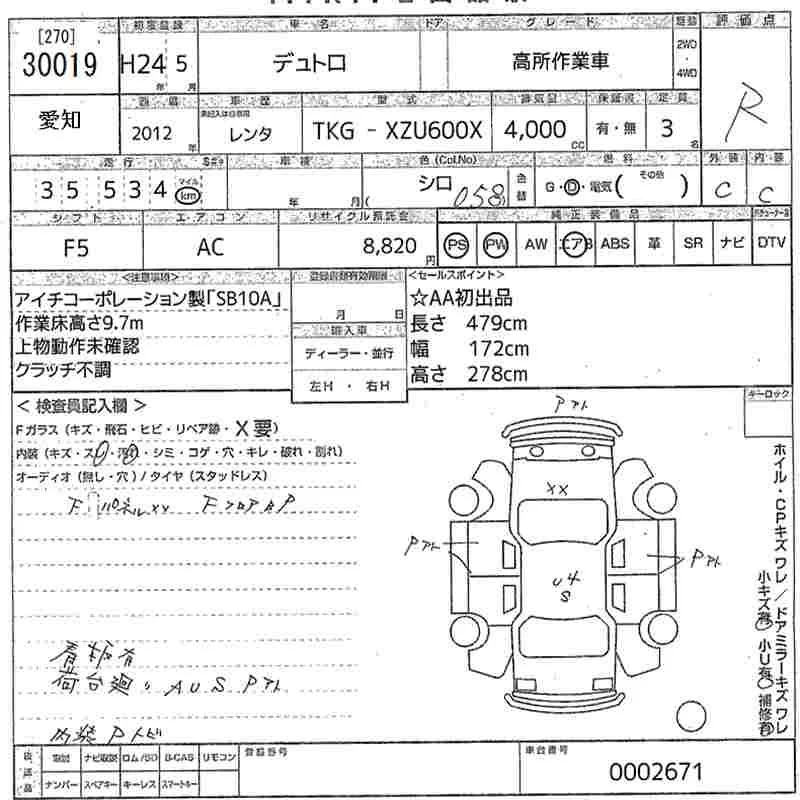 [270]
30019
初度登録 車名 ドア グレード 駆動 評価点
H24 5 デュトロ 高所作業車 2WD ・ 4WD R
年 月
愛知
車歴 型式 排気量 定員
2012 年 レンタ TKG - XZU600X 4,000 CC 有・無 3 名
走行 車検 色(Col.No) 燃料 外装 内装
35 534 マイル km 年 月( シロ 058) 色替 G・D・電気( その他 ) C C
シフト エアコン リサイクル預託金 純正装備品
F5 AC 8,820 円 PS PW AW エアB ABS 革 SR ナビ DTV
<注意事項> 登録書類有効期限 <セールスポイント>
アイチコーポレーション製「SB10A」
作業床高さ9.7m
上物動作未確認
クラッチ不調
月 日
輸入車
ディーラー・並行
左H ・ 右H
☆AA初出品
長さ 479cm
幅 172cm
高さ 278cm
キーロック
< 検査員記入欄 >
Fガラス(キズ・飛石・ヒビ・リペア跡・X要)
内装(キズ・スレ・汚れ・シミ・コゲ・穴・キレ・破れ・割れ)
オーディオ(無し・穴)/タイヤ(スタッドレス)
F パネルXX FフロアAP
Pアト
XX
Pアト
Pアト
U4
S
看板有
荷台廻り AUS Pアト
Pトビ
ホイル・CPキズワレ/ドアミラーキズワレ
小キズ有 小U有 補修有
後送品
取説 ナビ取説 ロム/SD B-CAS リモコン
ナンバー スペアキー キーレス スマートキー
登録番号
車台番号
0002671